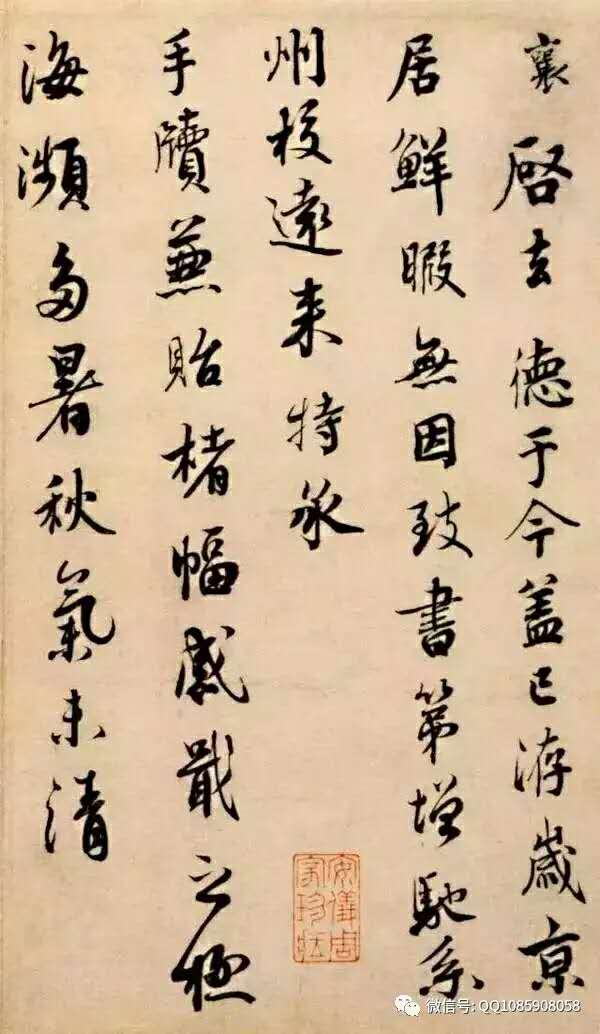 襄啓去德于今盖已洊歲京
居鮮暇無因致書第增馳系
州校遠来特承
手牘兼貽楮幅感戢之極
海瀕多暑秋氣未清
安儀周
家珍藏
微信号: QQ1085908058